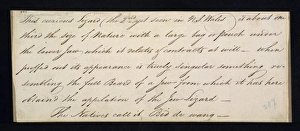 This curious Lizard (the 2nd I yet seen in N.S. Wales) is about one
third the size of Nature with a large bag or pouch under
the lower Jaw which it dilates & contracts at will — when
puffed out its appearance is truly singular something re-
sembling the full Beard of a Jew from which it has here
obtained the appellation of the Jew Lizard —
The Natives call it, de wang —